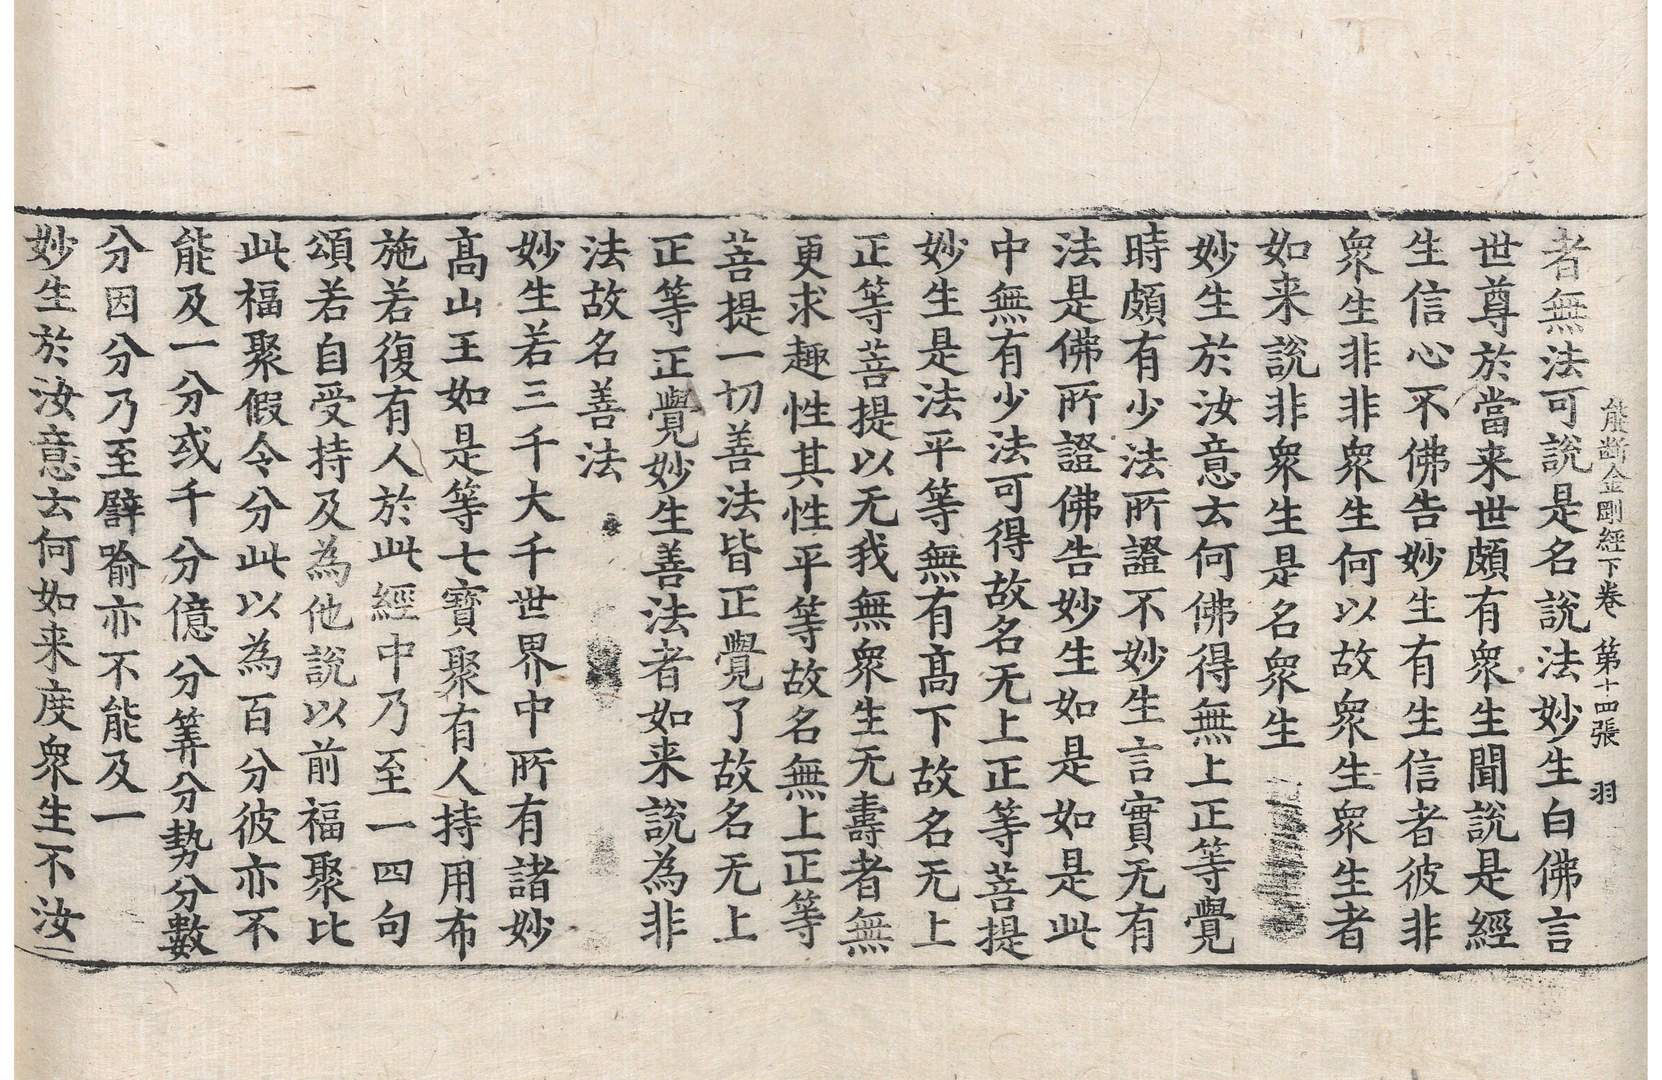 能斷金剛經下卷 第十四張 羽
者無法可說是名說法妙生白佛言
世尊於當来世頗有衆生聞說是經
生信心不佛告妙生有生信者彼非
衆生非非衆生何以故衆生衆生者
如来說非衆生是名衆生
妙生於汝意云何佛得無上正等覺
時頗有少法所證不妙生言實无有
法是佛所證佛告妙生如是如是此
中無有少法可得故名无上正等菩提
妙生是法平等無有髙下故名无上
正等菩提以无我無衆生无壽者無
更求趣性其性平等故名無上正等
菩提一切善法皆正覺了故名无上
正等正覺妙生善法者如来說為非
法故名善法
妙生若三千大千世界中所有諸妙
髙山王如是等七寶聚有人持用布
施若復有人於此經中乃至一四句
頌若自受持及為他說以前福聚比
此福聚假令分此以為百分彼亦不
能及一分或千分億分筭分勢分數
分因分乃至譬喻亦不能及一
妙生於汝意云何如来度衆生不汝